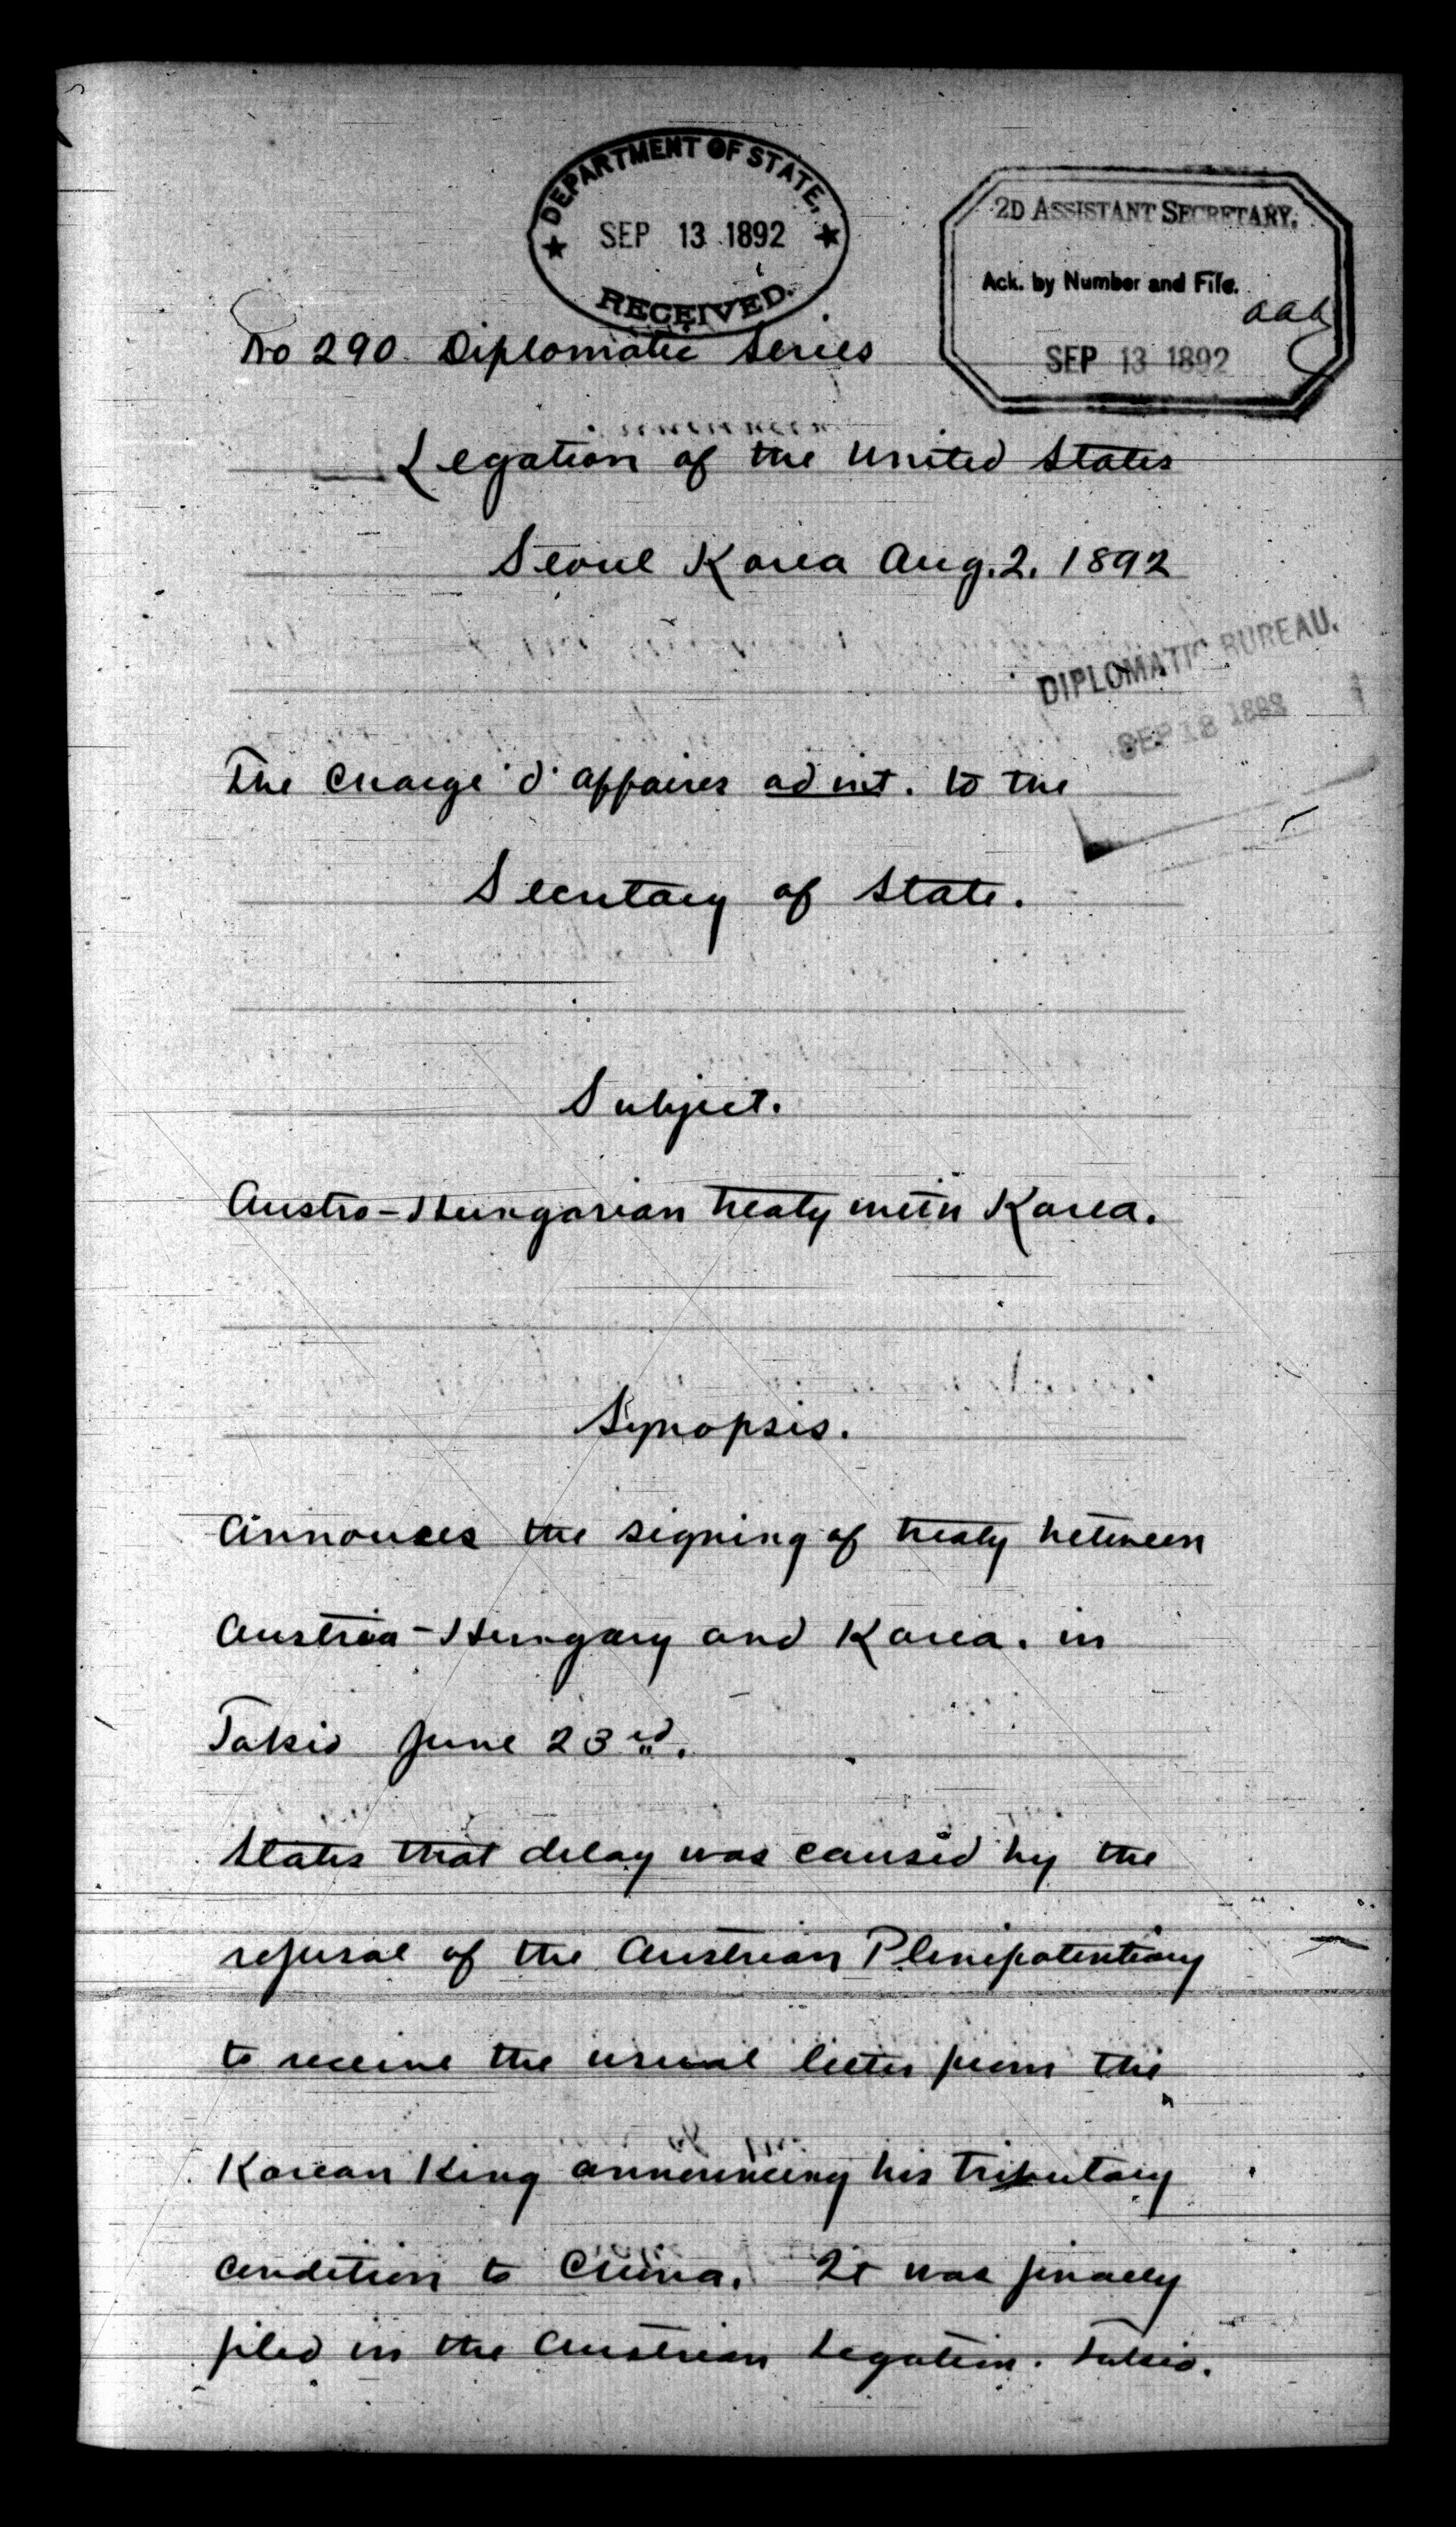 DEPARTMENT OF STATE,
SEP 13 1892
RECEIVED.
2D ASSISTANT SECRETARY.
Ack. by Number and File.
aaa
SEP 13 1892
No 290 Diplomatic Series
Legation of the United States
Seoul Korea Aug. 2. 1892
DIPLOMATIC BUREAU.
SEP 13 1892
The Charge d' affaires ad int. to the
Secretary of State.
Subject.
Austro-Hungarian treaty with Korea.
Synopsis.
Announces the signing of treaty between
Austria-Hungary and Korea. in
Tokio June 23rd.
States that delay was caused by the
refusal of the Austrian Plenipotentiary
to receive the usual letter from the
Korean King announcing his tributary
condition to China. It was finally
filed in the Austrian Legation. Tokio.